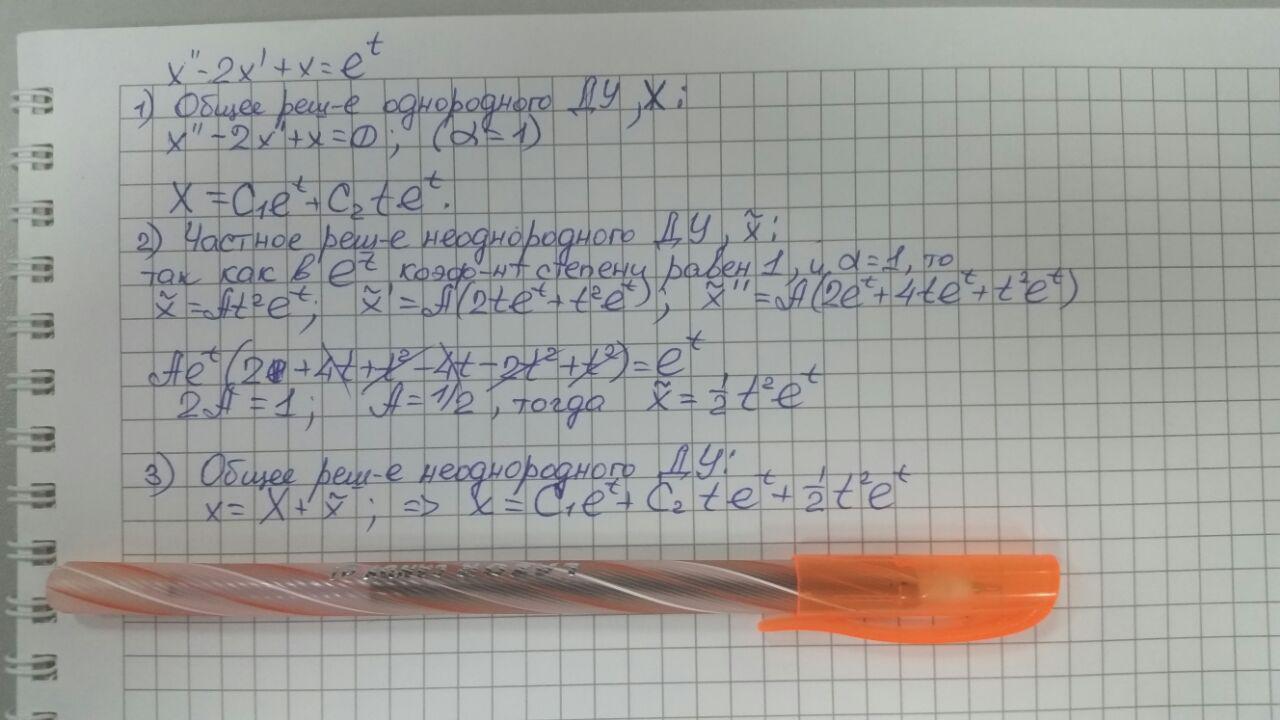 x'' - 2x' + x = e^t
1) Общее реш-е однородного ДУ, X:
x'' - 2x' + x = 0; (α = 1)
X = C₁e^t + C₂te^t.
2) Частное реш-е неоднородного ДУ, x̃:
так как в e^t коэф-нт степени равен 1, и α=1, то
x̃ = At²e^t; x̃' = A(2te^t + t²e^t); x̃'' = A(2e^t + 4te^t + t²e^t)
Ae^t(2 + 4t + t² - 4t - 2t² + t²) = e^t,
2A = 1; A = 1/2, тогда x̃ = ½t²e^t
3) Общее реш-е неоднородного ДУ:
x = X + x̃; => x = C₁e^t + C₂te^t + ½t²e^t